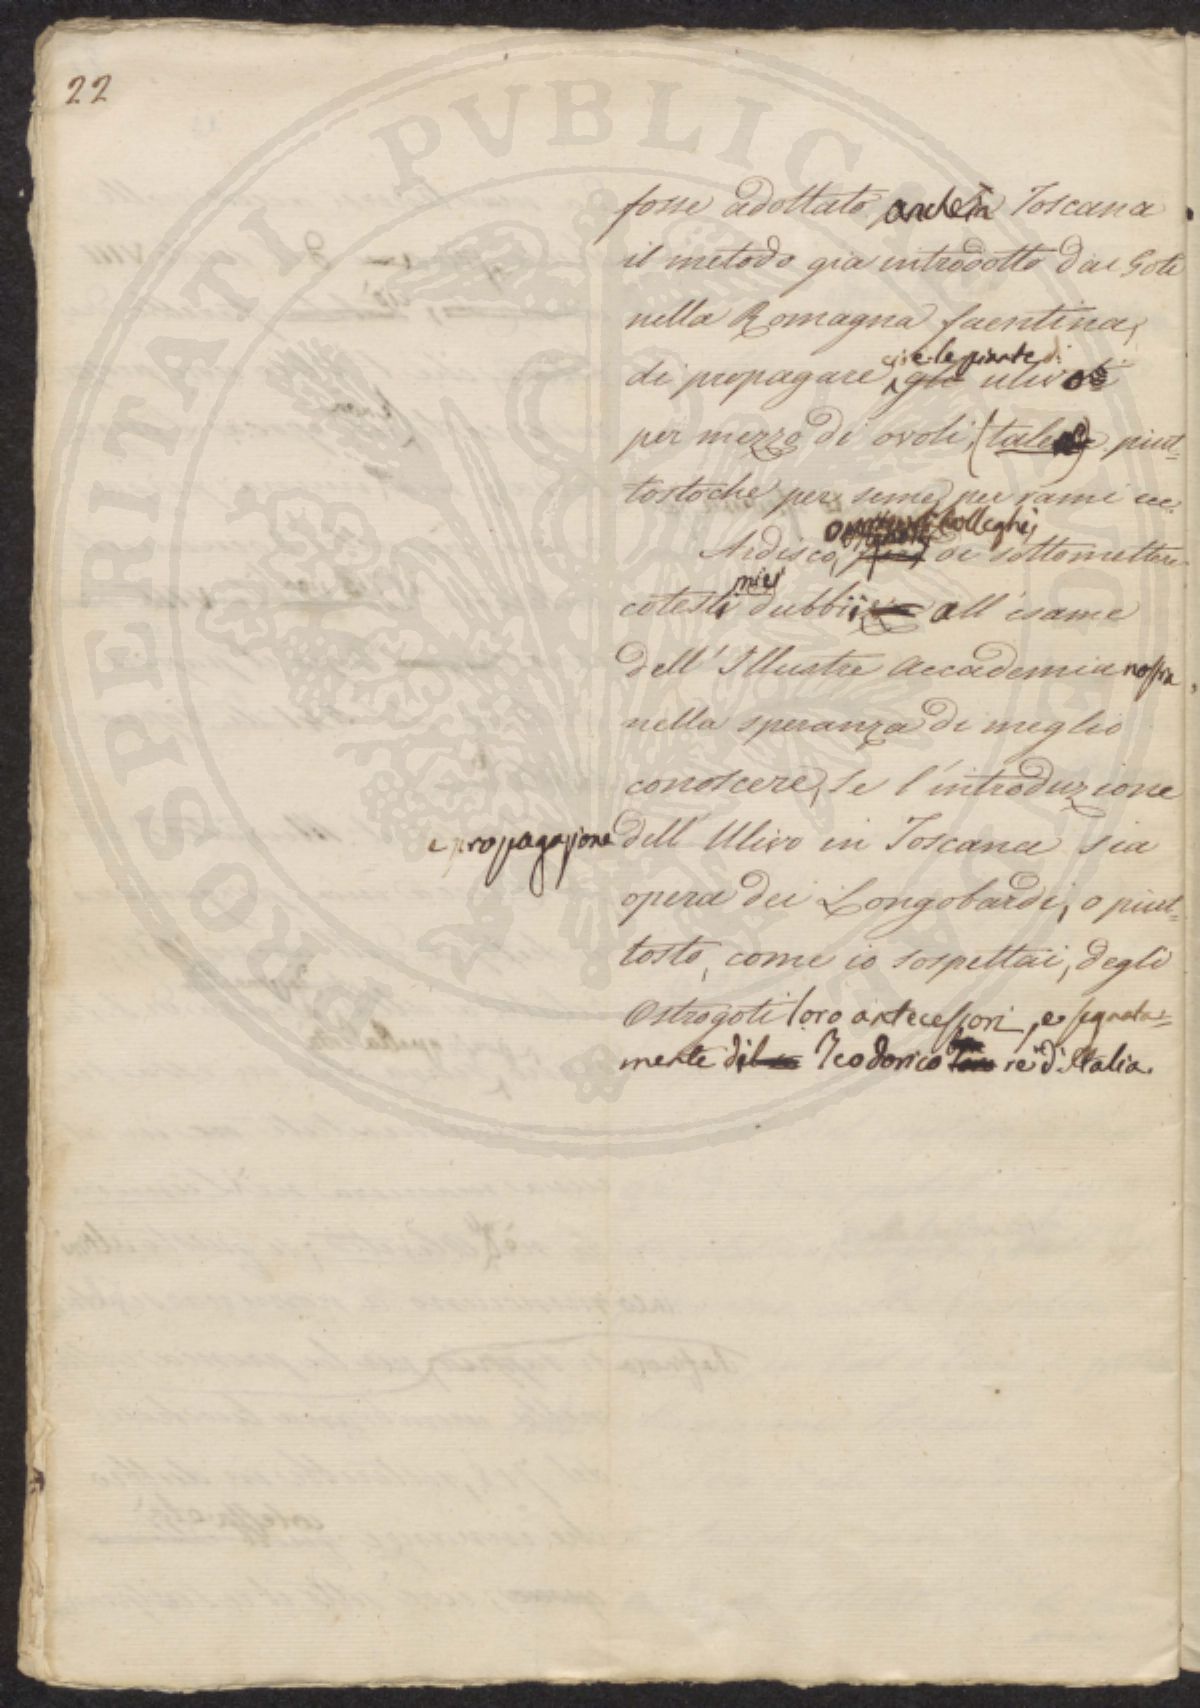 22
fosse adottato anche in Toscana
il metodo gia introdotto dai Goti
nella Romagna faentina,
cioè le piante di
di propagare gli ulivi
per mezzo di ovoli, (talee) piut-
tostoche per seme, per rami ec.
onorevoli Colleghi,
Ardisco, di sottomettere
miei
cotesti dubbii all'esame
dell'Illustre Accademia nostra,
nella speranza di meglio
conoscere, se l'introduzione
e propagazione dell'Ulivo in Toscana sia
opera dei Longobardi, o piut-
tosto, come io sospettai, degli
Ostrogoti loro antecessori, e segnata-
mente di Teodorico re d'Italia.
PROSPERITATI PVBLICAE